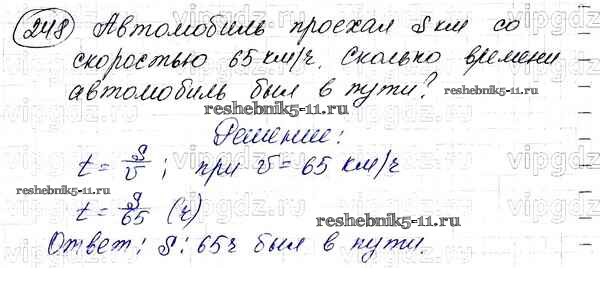 248 Автомобиль проехал S км со
скоростью 65 км/ч. Сколько времени
автомобиль был в пути?
reshebnik5-11.ru
Решение:
t = S/v ; при v = 65 км/ч
reshebnik5-11.ru
t = S/65 (ч)
reshebnik5-11.ru
Ответ: S : 65 ч был в пути.
vipgdz.ru